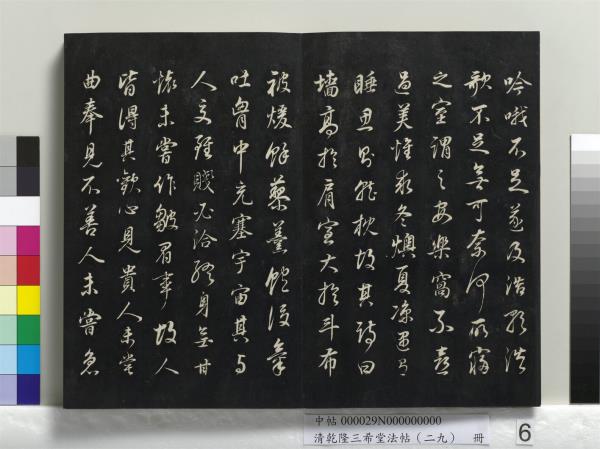 吟哦不足遂及浩歌浩
歌不足無可奈何所寢
之室謂之安樂窩不喜
過美惟求冬燠夏凉遇有
睡思則就枕故其詩曰
墻高於肩室大於斗布
被煖餘藜羹飽後氣
吐胷中充塞宇宙其與
人交雖賤必洽終身無甘
壞未嘗作皺眉事故人
皆得其歡心見貴人未嘗
曲奉見不善人未嘗急
中帖 000029N000000000
清乾隆三希堂法帖（二九） 冊
6